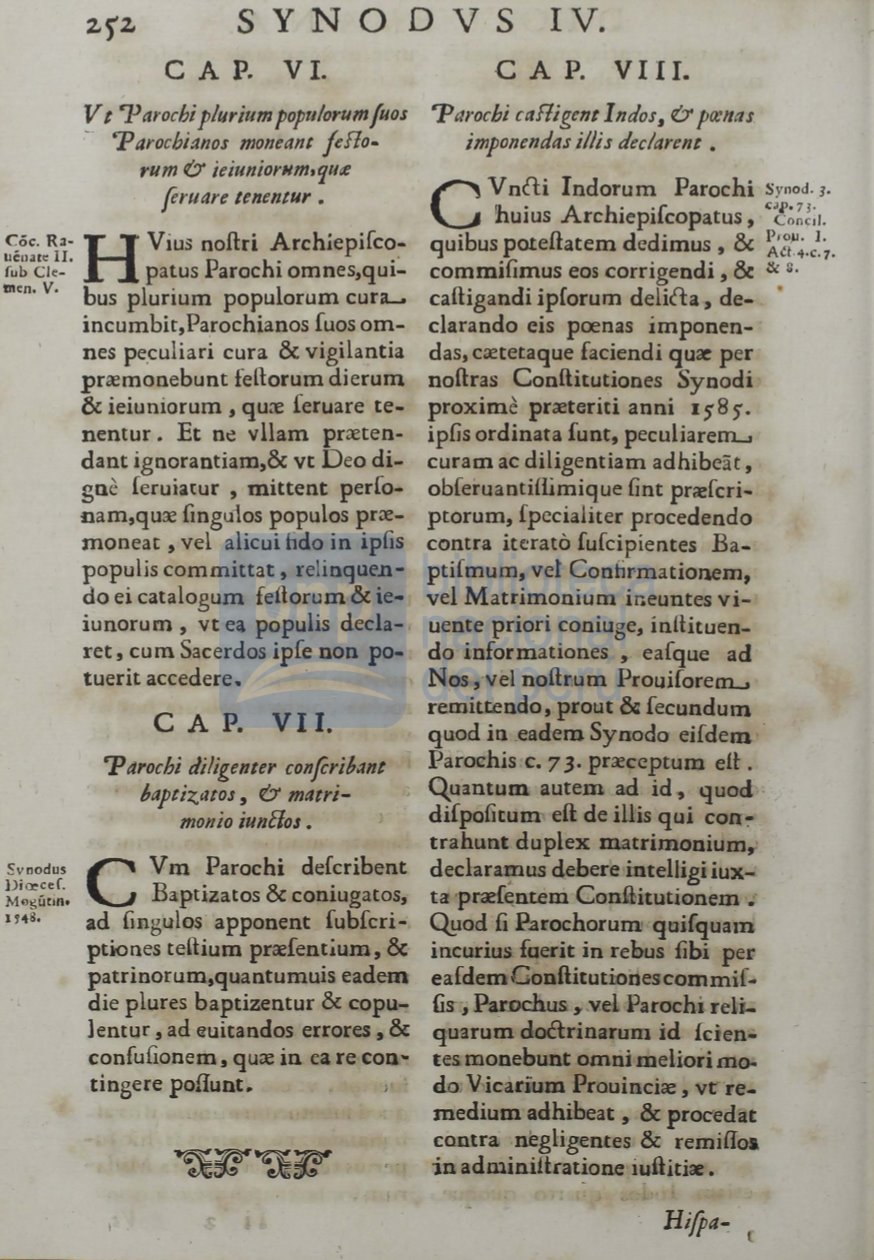 252 SYNODVS IV.
CAP. VI.
Vt Parochi plurium populorum ſuos
Parochianos moneant feſto-
rum & ieiuniorum, quæ
ſeruare tenentur .
Cōc. Ra-
uēnate II.
ſub Cle-
men. V.
HVius noſtri Archiepiſco-
patus Parochi omnes,qui-
bus plurium populorum cura
incumbit,Parochianos ſuos om-
nes peculiari cura & vigilantia
præmonebunt feſtorum dierum
& ieiuniorum , quæ ſeruare te-
nentur. Et ne vllam præten-
dant ignorantiam,& vt Deo di-
gnè ſeruiatur , mittent perſo-
nam,quæ ſingulos populos præ-
moneat , vel alicui fido in ipſis
populis committat , relinquen-
do ei catalogum feſtorum & ie-
iunorum , vt ea populis decla-
ret, cum Sacerdos ipſe non po-
tuerit accedere.
CAP. VII.
Parochi diligenter conſcribant
baptizatos, & matri-
monio iunctos .
Synodus
Diœceſ.
Mogūtin.
1548.
CVm Parochi deſcribent
Baptizatos & coniugatos,
ad ſingulos apponent ſubſcri-
ptiones teſtium præſentium, &
patrinorum,quantumuis eadem
die plures baptizentur & copu-
lentur , ad euitandos errores , &
confuſionem, quæ in ea re con-
tingere poſſunt.
CAP. VIII.
Parochi caſtigent Indos, & pœnas
imponendas illis declarent .
CVncti Indorum Parochi
huius Archiepiſcopatus ,
quibus poteſtatem dedimus , &
commiſimus eos corrigendi , &
caſtigandi ipſorum delicta, de-
clarando eis pœnas imponen-
das, cætetaque faciendi quæ per
noſtras Conſtitutiones Synodi
proximè præteriti anni 1585.
ipſis ordinata ſunt, peculiarem
curam ac diligentiam adhibeāt,
obſeruantiſſimique ſint præſcri-
ptorum, ſpecialiter procedendo
contra iteratò ſuſcipientes Ba-
ptiſmum, vel Confirmationem,
vel Matrimonium ineuntes vi-
uente priori coniuge, inſtituen-
do informationes , eaſque ad
Nos, vel noſtrum Prouiſorem
remittendo, prout & ſecundum
quod in eadem Synodo eiſdem
Parochis c. 73. præceptum eſt .
Quantum autem ad id, quod
diſpoſitum eſt de illis qui con-
trahunt duplex matrimonium,
declaramus debere intelligi iux-
ta præſentem Conſtitutionem .
Quod ſi Parochorum quiſquam
incurius fuerit in rebus ſibi per
eaſdem Conſtitutiones commiſ-
ſis , Parochus , vel Parochi reli-
quarum doctrinarum id ſcien-
tes monebunt omni meliori mo-
do Vicarium Prouinciæ , vt re-
medium adhibeat , & procedat
contra negligentes & remiſſos
in adminiſtratione iuſtitiæ .
Synod. 3.
cap. 73.
Concil.
Prou. 1.
Act 4.c.7.
& 8.
Hiſpa-